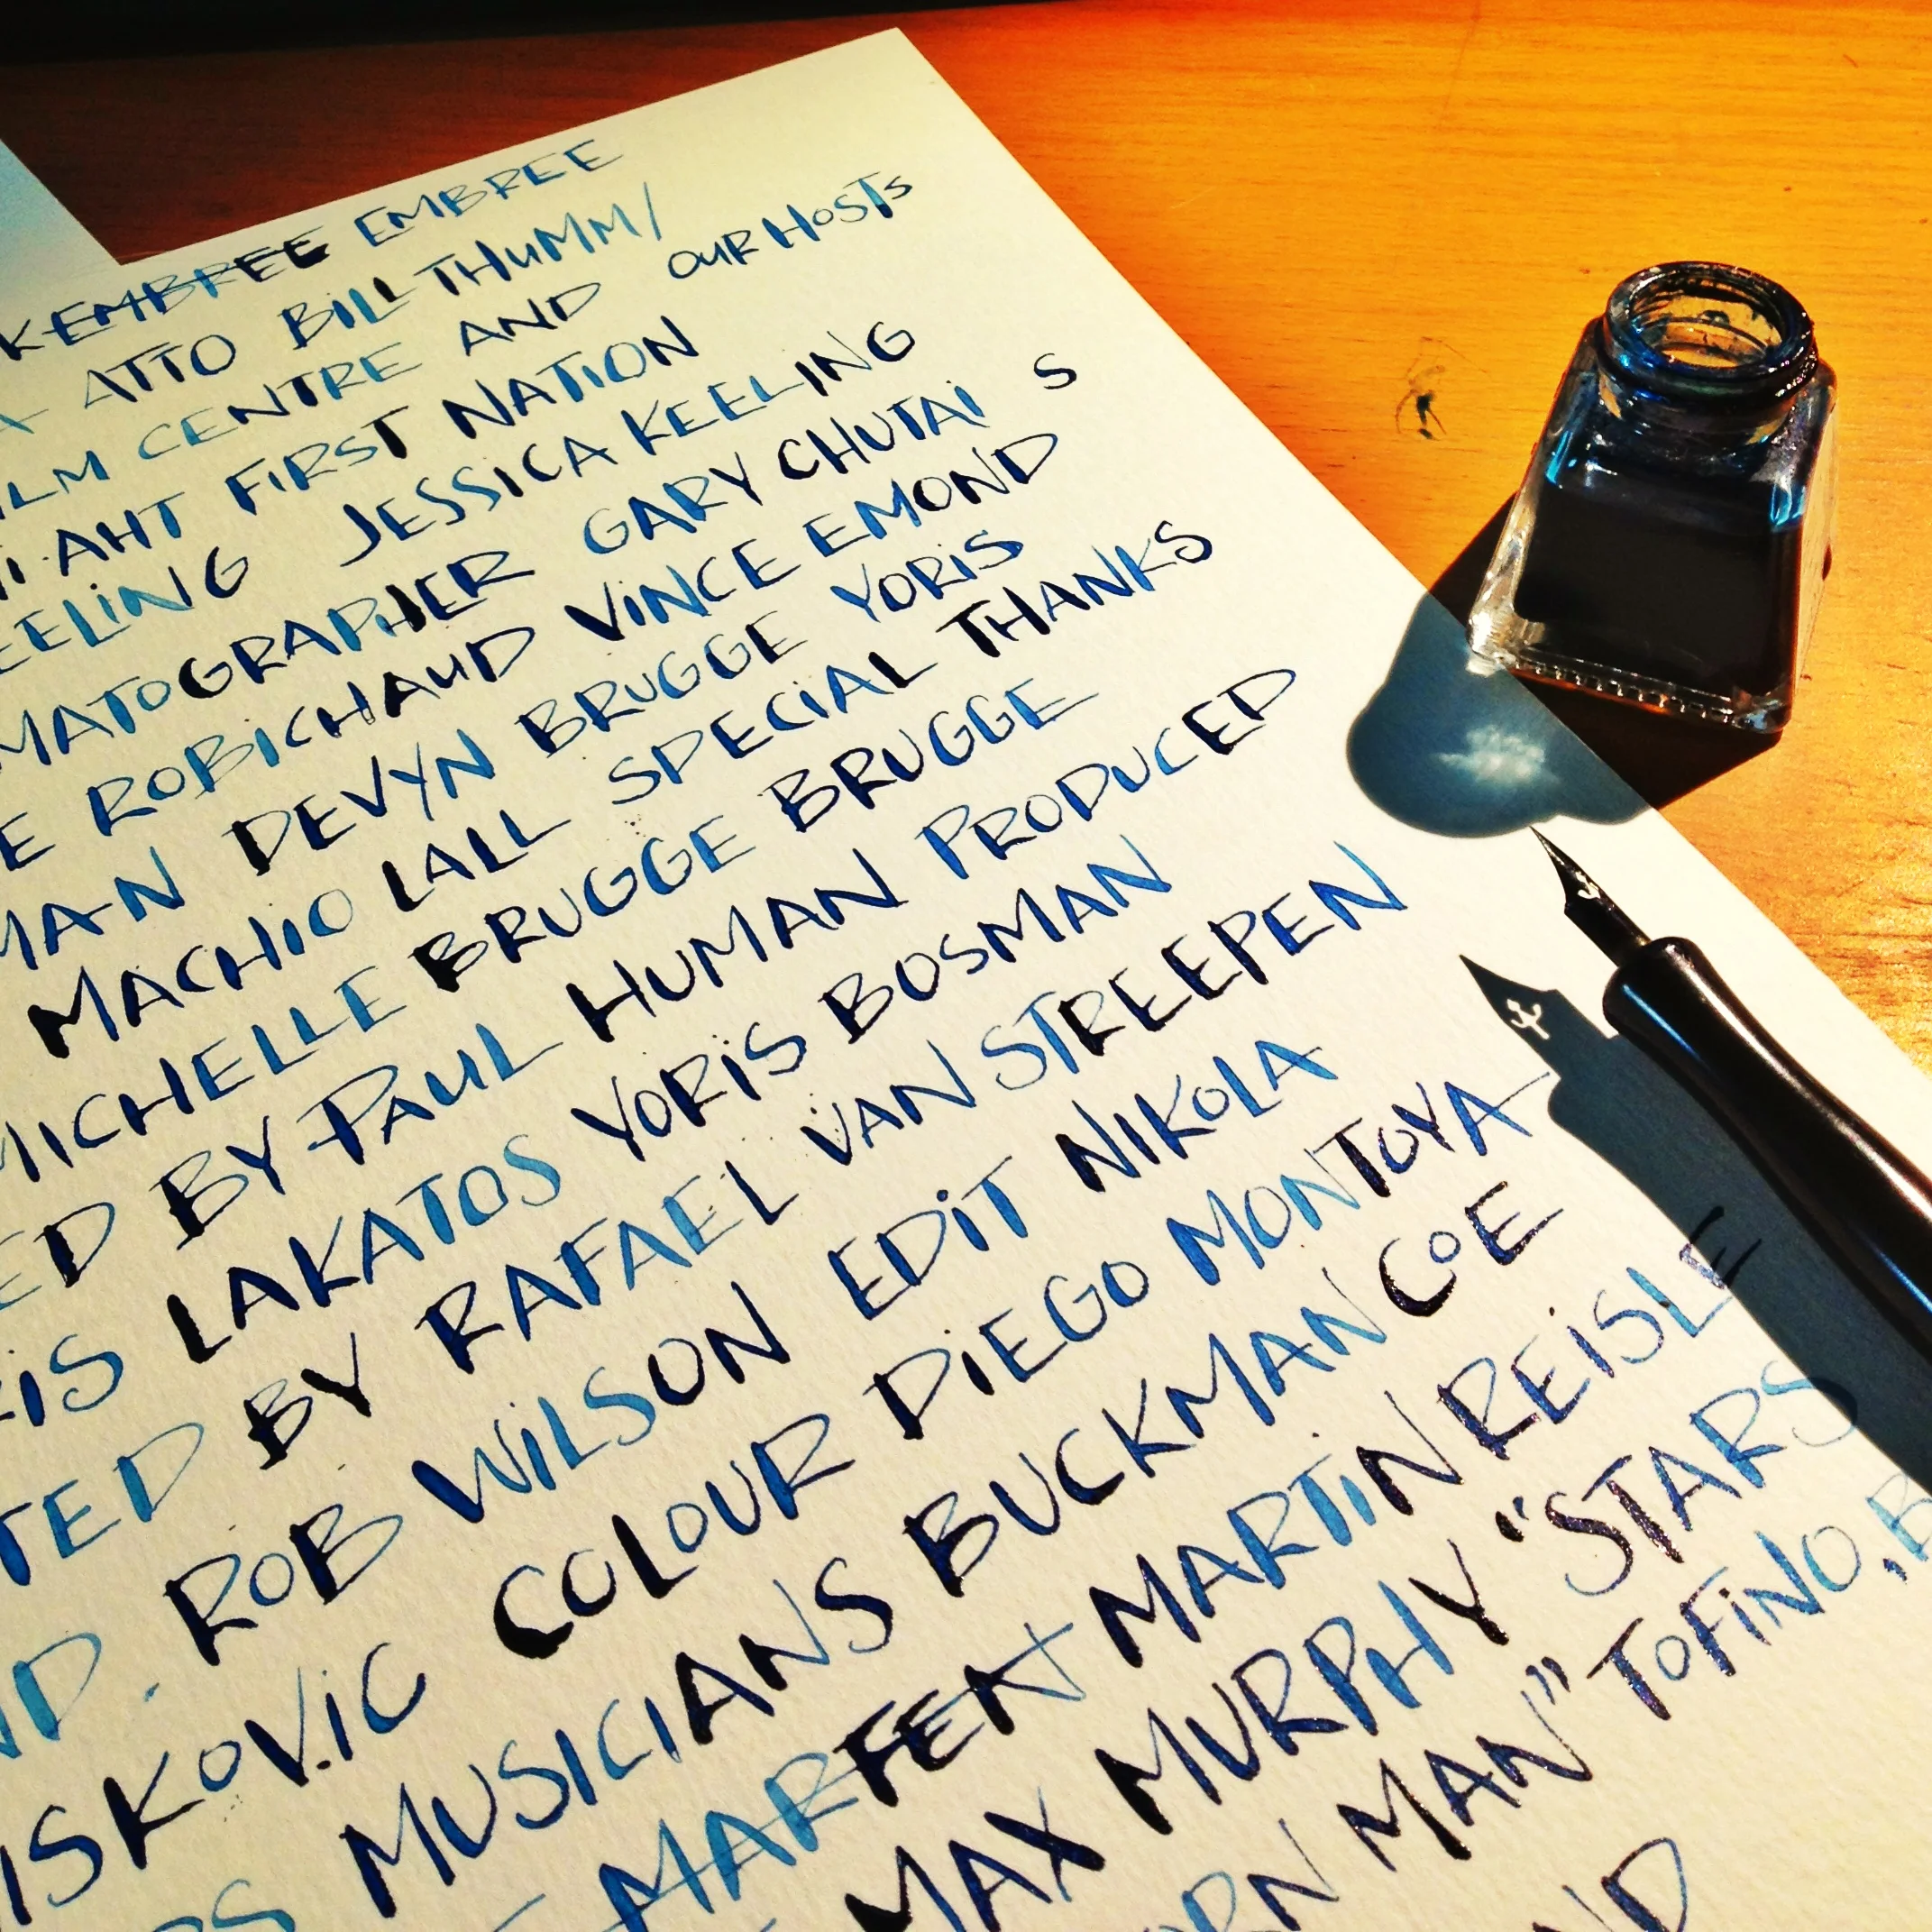 KEMBREE EMBREE
ATTO BILL THUMM/
CENTRE AND OUR HOSTS
AHT FIRST NATION
JESSICA KEELING
GARY CHUTAI S
ROBICHAUD VINCE EMOND
DEVYN BRUGGE YORIS
MACHIO LALL SPECIAL THANKS
MICHELLE BRUGGE BRUGGE
BY PAUL HUMAN PRODUCED
LAKATOS YORIS BOSMAN
BY RAFAEL VAN STREEPEN
ROB WILSON EDIT NIKOLA
COLOUR DIEGO MONTOYA
MUSICIANS BUCKMAN COE
MARFEN MARTIN REISLE
MAX MURPHY "STARS
MAN" TOFINO, B